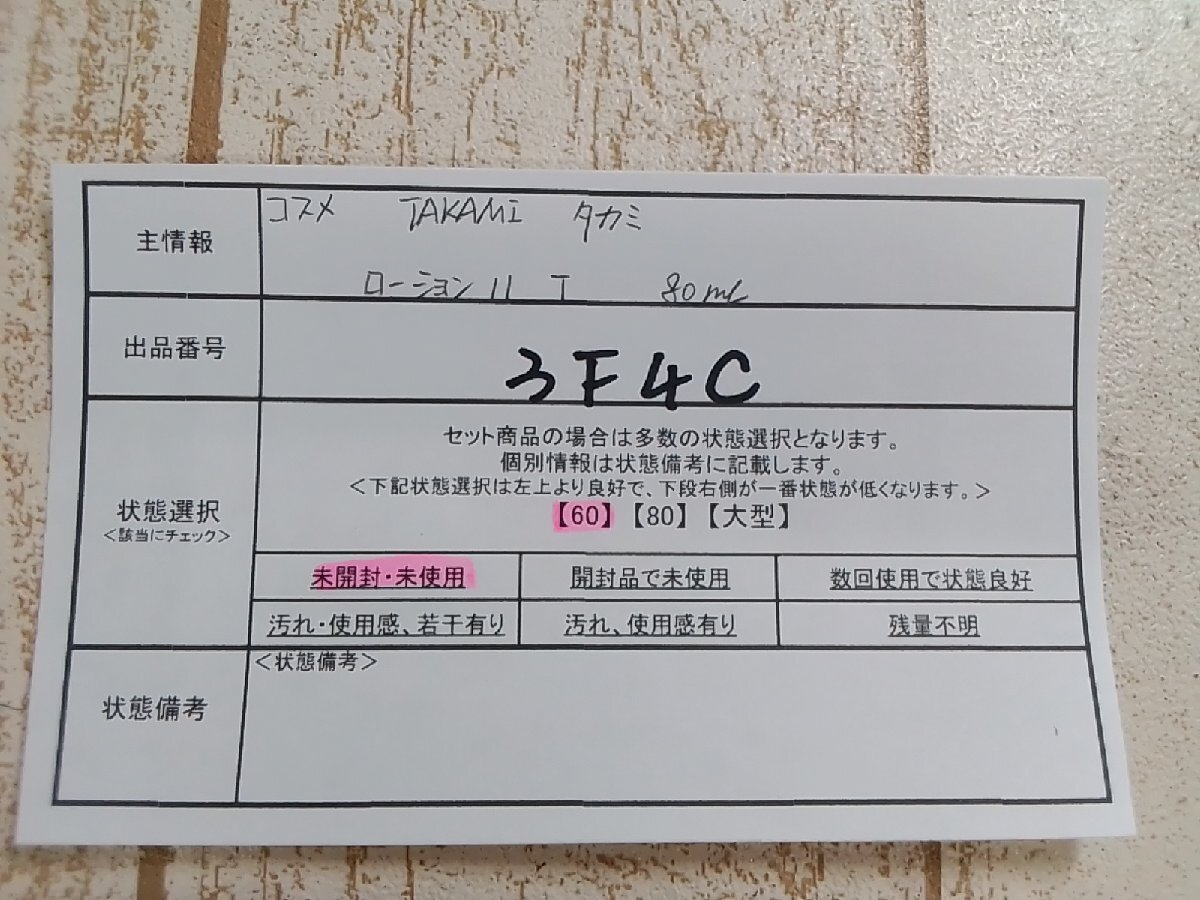 主情報
コスメ TAKAMI タカミ
ローション II T 80ml
出品番号
3F4C
状態選択
<該当にチェック>
セット商品の場合は多数の状態選択となります。
個別情報は状態備考に記載します。
<下記状態選択は左上より良好で、下段右側が一番状態が低くなります。>
【60】【80】【大型】
未開封・未使用 開封品で未使用 数回使用で状態良好
汚れ・使用感、若干有り 汚れ、使用感有り 残量不明
状態備考
<状態備考>